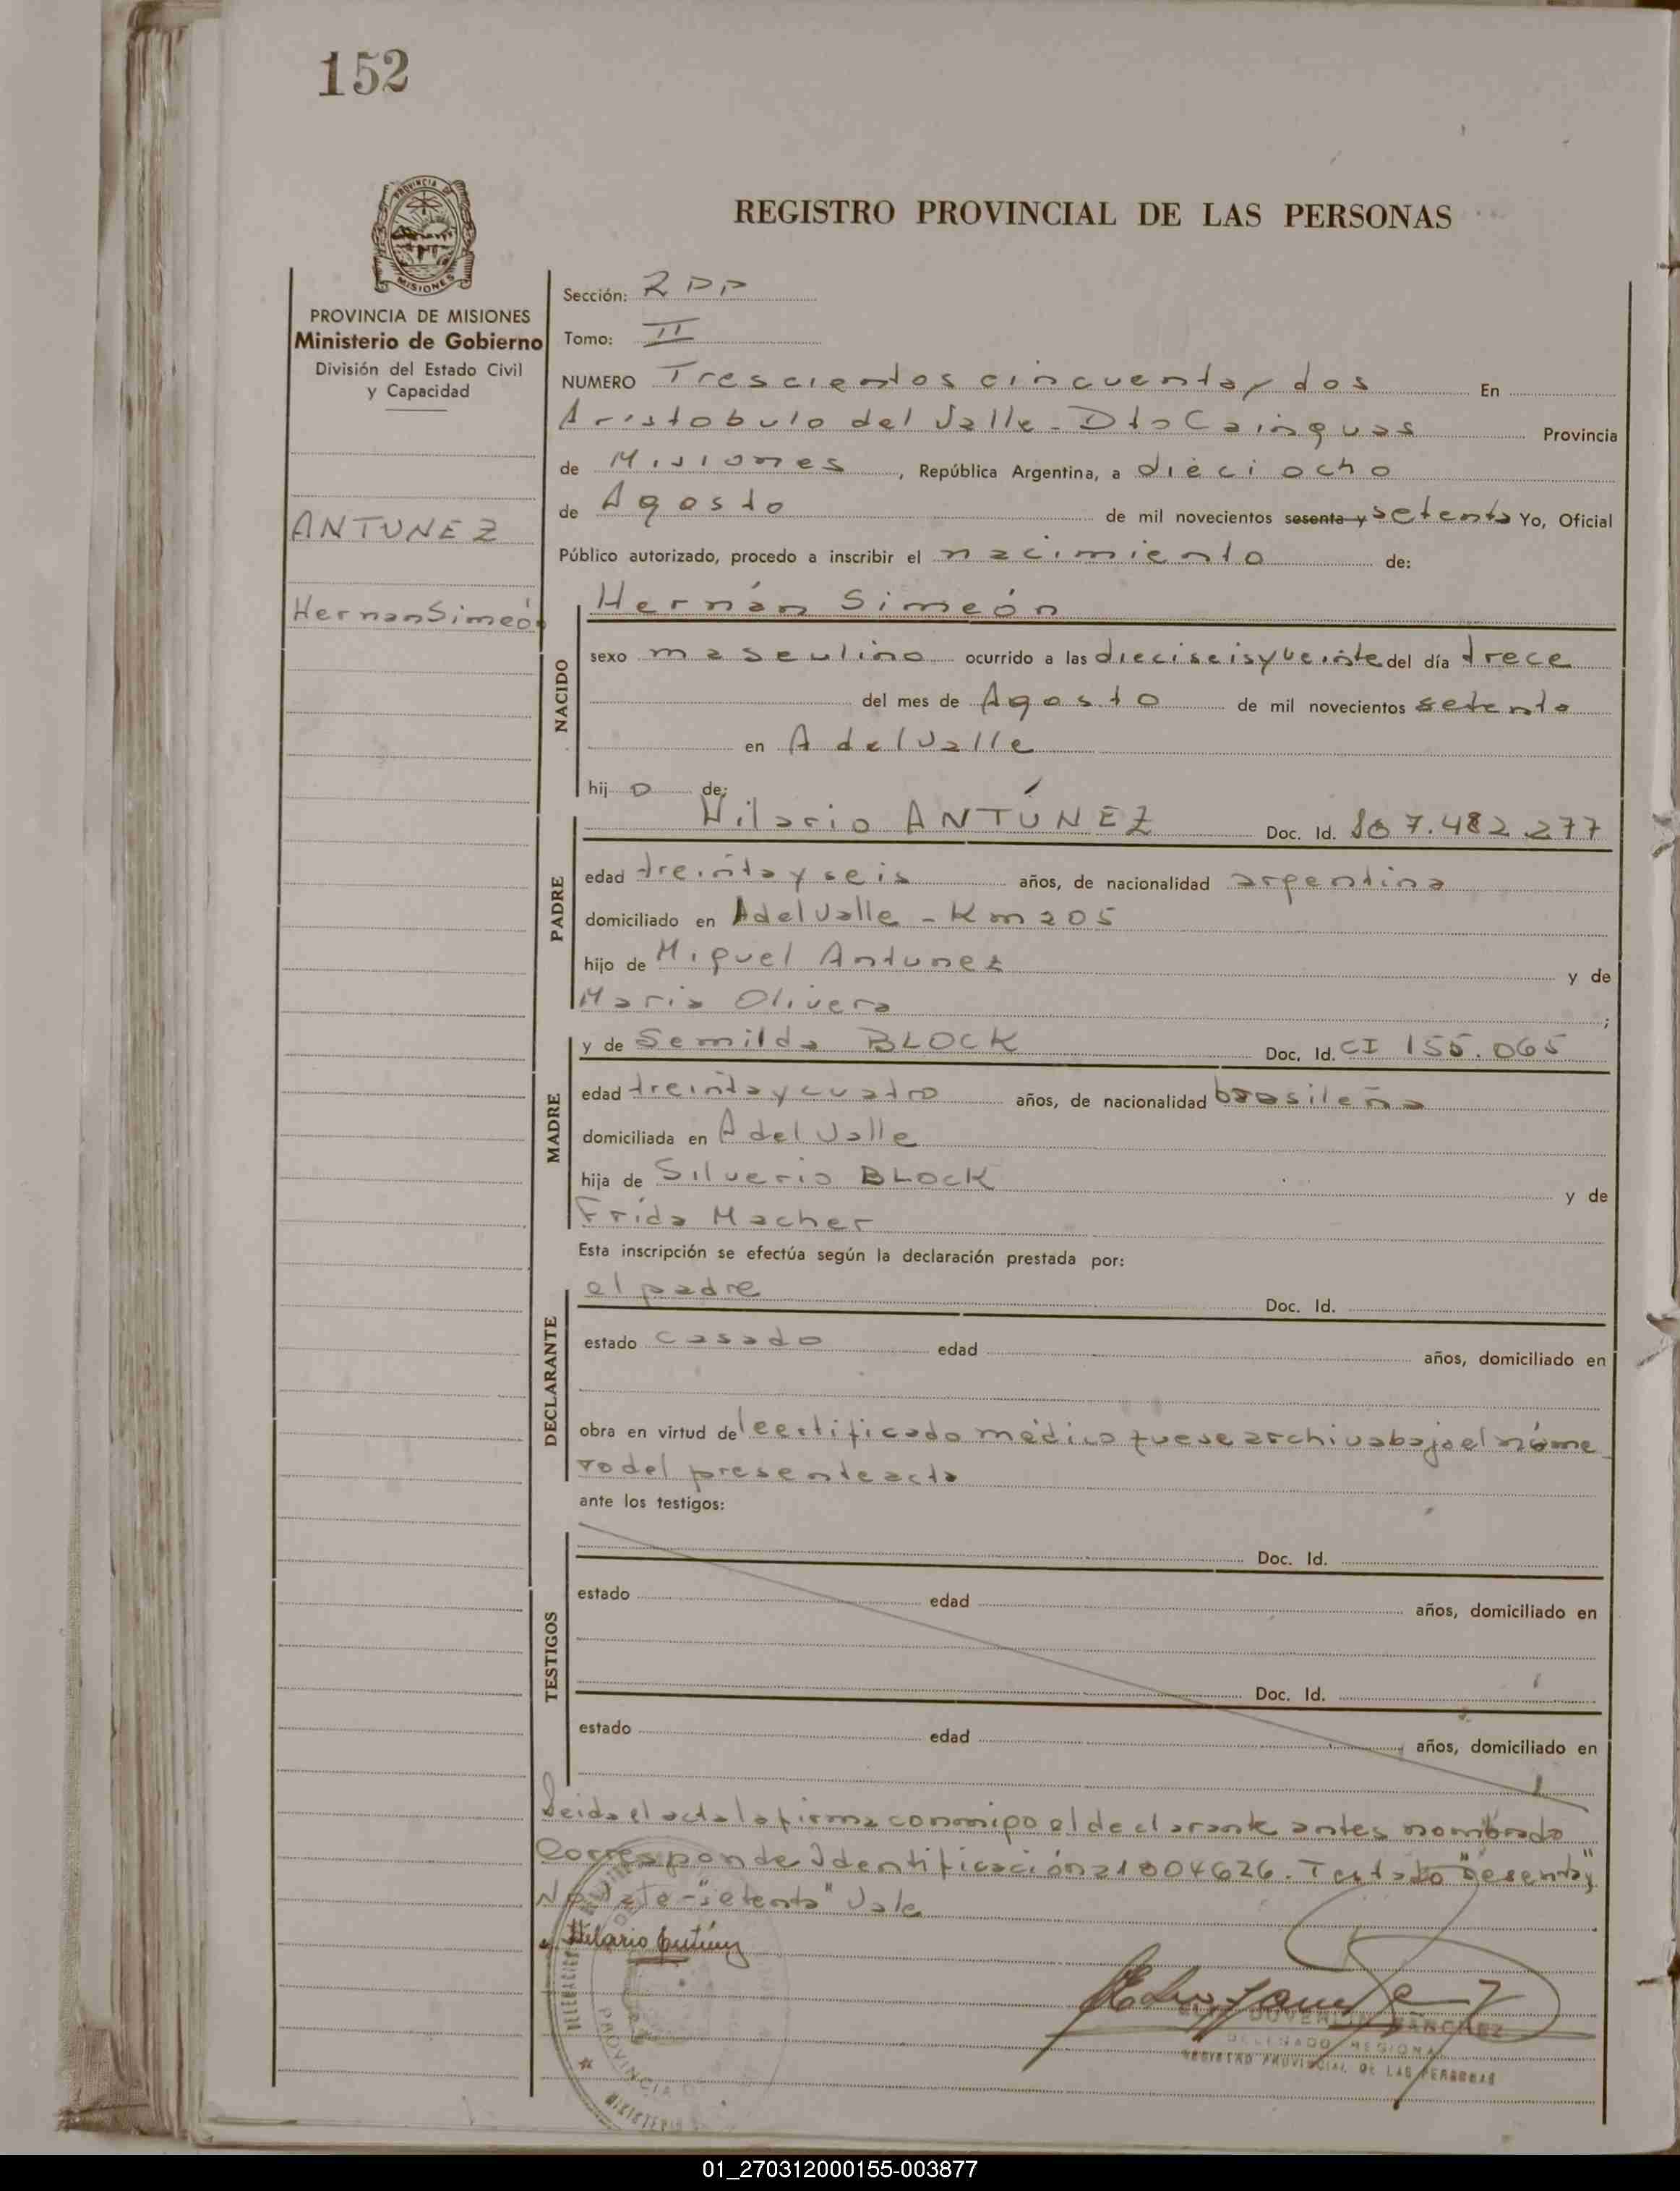 152
PROVINCIA DE
MISIONES
REGISTRO PROVINCIAL DE LAS PERSONAS
PROVINCIA DE MISIONES
Ministerio de Gobierno
División del Estado Civil
y Capacidad
ANTUNEZ
Hernan Simeón
Sección: RPP
Tomo: II
NUMERO Trescientos cincuenta y dos En
Aristobulo del Valle - Dto Cainguas Provincia
de Misiones, República Argentina, a dieciocho
de Agosto de mil novecientos sesenta y setenta Yo, Oficial
Público autorizado, procedo a inscribir el nacimiento de:
NACIDO
Hernán Simeón
sexo masculino ocurrido a las dieciseis y veinte del día trece
del mes de Agosto de mil novecientos setenta
en A del Valle
hijo de:
PADRE
Hilario ANTÚNEZ Doc. Id. 7.482.277
edad treinta y seis años, de nacionalidad argentina
domiciliado en A del Valle - Km 205
hijo de Miguel Antunez y de
Maria Olivera ;
MADRE
y de Semilda BLOCK Doc. Id. CI 155.065
edad treinta y cuatro años, de nacionalidad brasileña
domiciliada en A del Valle
hija de Silverio BLOCK y de
Frida Macher
Esta inscripción se efectúa según la declaración prestada por:
DECLARANTE
el padre Doc. Id.
estado casado edad años, domiciliado en
obra en virtud del certificado médico que se archiva bajo el núme
ro del presente acta
ante los testigos:
TESTIGOS
Doc. Id.
estado edad años, domiciliado en
Doc. Id.
estado edad años, domiciliado en
Leida el acta la firma conmigo el declarante antes nombrado
Corresponde Identificación 21804626. Testado "sesenta y"
No Vale - "setenta" Vale
Hilario Antúnez
SANCHEZ
DELEGADO REGIONAL
REGISTRO PROVINCIAL DE LAS PERSONAS
PROVINCIA
01_270312000155-003877